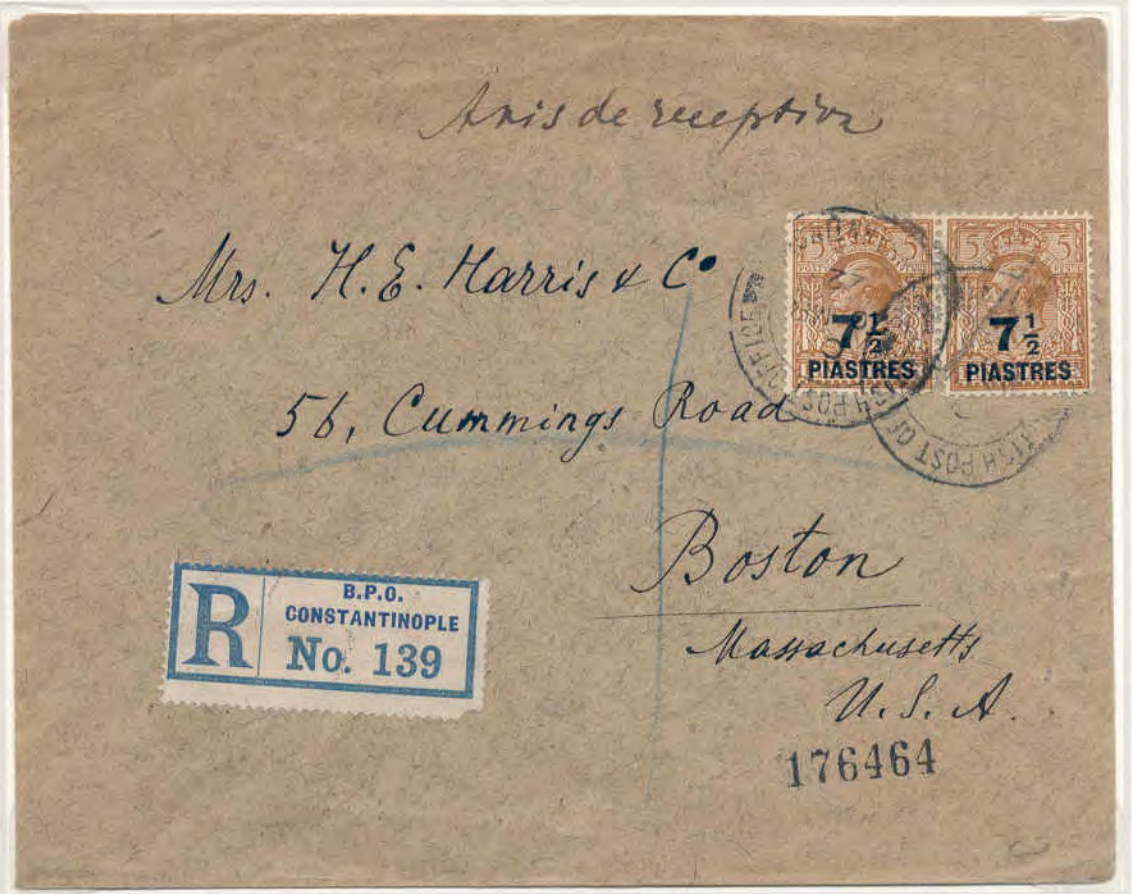 Avis de reception
Mrs. H. E. Harris & Co
56, Cummings Road
Boston
Massachusetts
U. S. A.
176464
R
B.P.O.
CONSTANTINOPLE
No. 139
5
7 1/2
PIASTRES
5
7 1/2
PIASTRES
BRITISH POST OFFICE
BRITISH POST OF